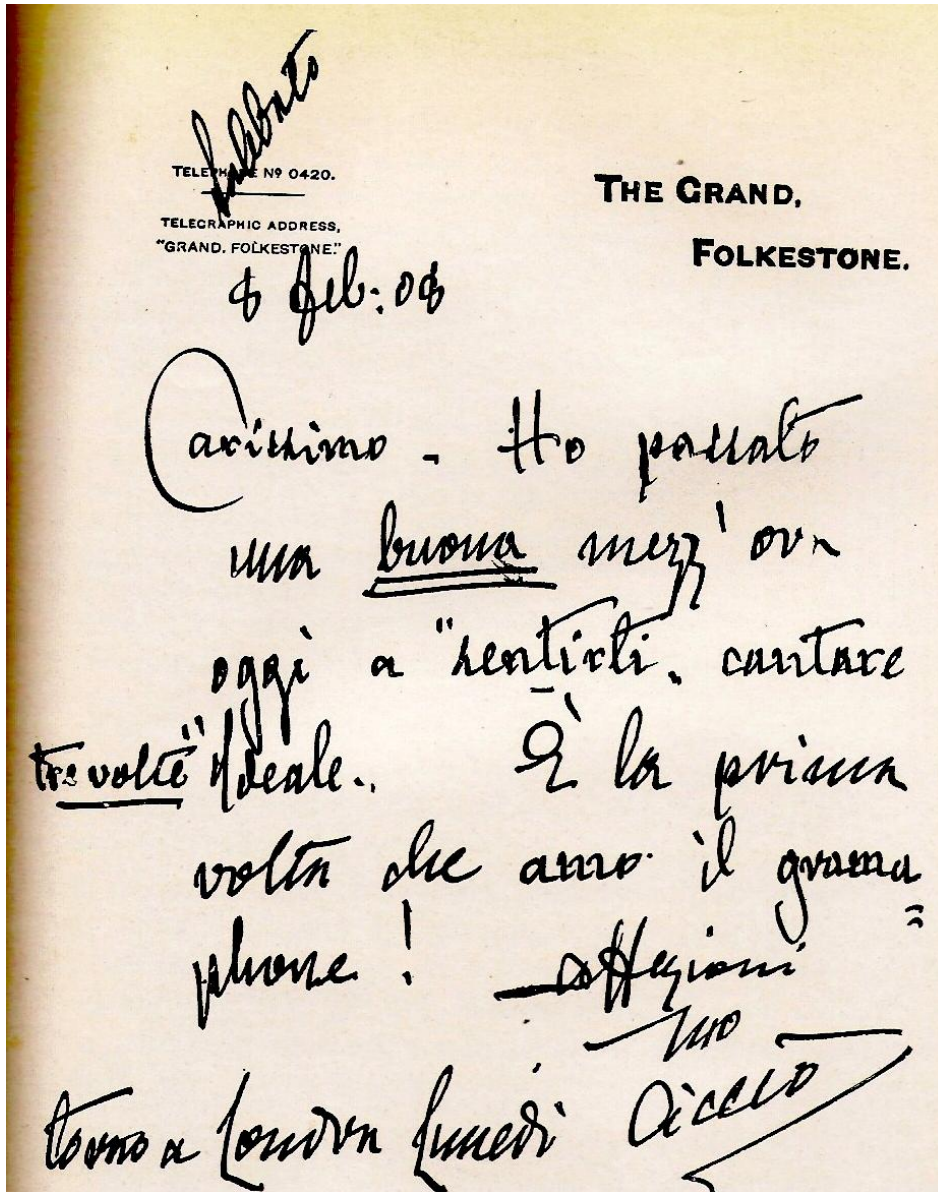 Sabbato
TELEPHONE Nº 0420.
THE GRAND,
TELEGRAPHIC ADDRESS,
"GRAND. FOLKESTONE."
FOLKESTONE.
8 feb: 08
Carissimo - Ho passato
una buona mezz'ora
oggi a "sentirti" cantare
tre volte "Ideale". È la prima
volta che amo il grama=
phone! — Affezioni
tuo
Ciccio
torno a Londra Lunedì